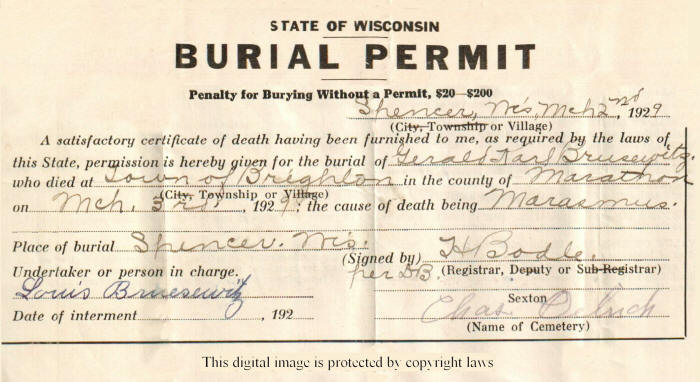 STATE OF WISCONSIN
BURIAL PERMIT
Penalty for Burying Without a Permit, $20—$200
Spencer, Wis, Mch 2nd, 1929
(City, Township or Village)
A satisfactory certificate of death having been furnished to me, as required by the laws of
this State, permission is hereby given for the burial of Gerald Karl Bruesewitz.
who died at Town of Brighton in the county of Marathon
(City, Township or Village)
on Mch. , 192 ; the cause of death being Marasmus.
Place of burial Spencer. Wis.
(Signed by) H Bodle.
Undertaker or person in charge. per DB. (Registrar, Deputy or Sub-Registrar)
Louis Bruesewitz
Sexton
Chas
Date of interment , 192
(Name of Cemetery)
This digital image is protected by copyright laws